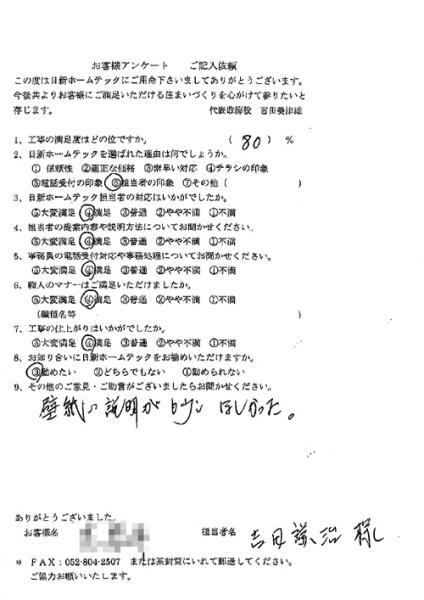 お客様アンケート　ご記入依頼
この度は日新ホームテックにご用命下さいましてありがとうございます。
今後共よりお客様にご満足いただける住まいづくりを心がけて参りたいと
存じます。　代表取締役
1、工事の満足度はどの位ですか。　( 80 ) %
2、日新ホームテックを選ばれた理由は何でしょうか。
① 信頼性 ②適正な価格 ③素早い対応 ④チラシの印象
⑤電話受付の印象 ⑥担当者の印象 ⑦その他 (　)
3、日新ホームテック担当者の対応はいかがでしたか。
⑤大変満足 ④満足 ③普通 ②やや不満 ①不満
4、担当者の提案内容や説明方法についてお聞かせください。
⑤大変満足 ④満足 ③普通 ②やや不満 ①不満
5、事務員の電話受付対応や事務処理についてお聞かせください。
⑤大変満足 ④満足 ③普通 ②やや不満 ①不満
6、職人のマナーはご満足いただけましたか。
⑤大変満足 ④満足 ③普通 ②やや不満 ①不満
(職種名等　)
7、工事の仕上がりはいかがでしたか。
⑤大変満足 ④満足 ③普通 ②やや不満 ①不満
8、お知り合いに日新ホームテックをお勧めいただけますか。
③勧めたい ②どちらでもない ①勧められない
9、その他のご意見・ご助言がございましたらお聞かせください。
壁紙の説明が ほしかった。
ありがとうございました。
お客様名　担当者名 吉田 治 様
* FAX：052-804-2507 または茶封筒にいれて郵送してください。
ご協力お願いいたします。